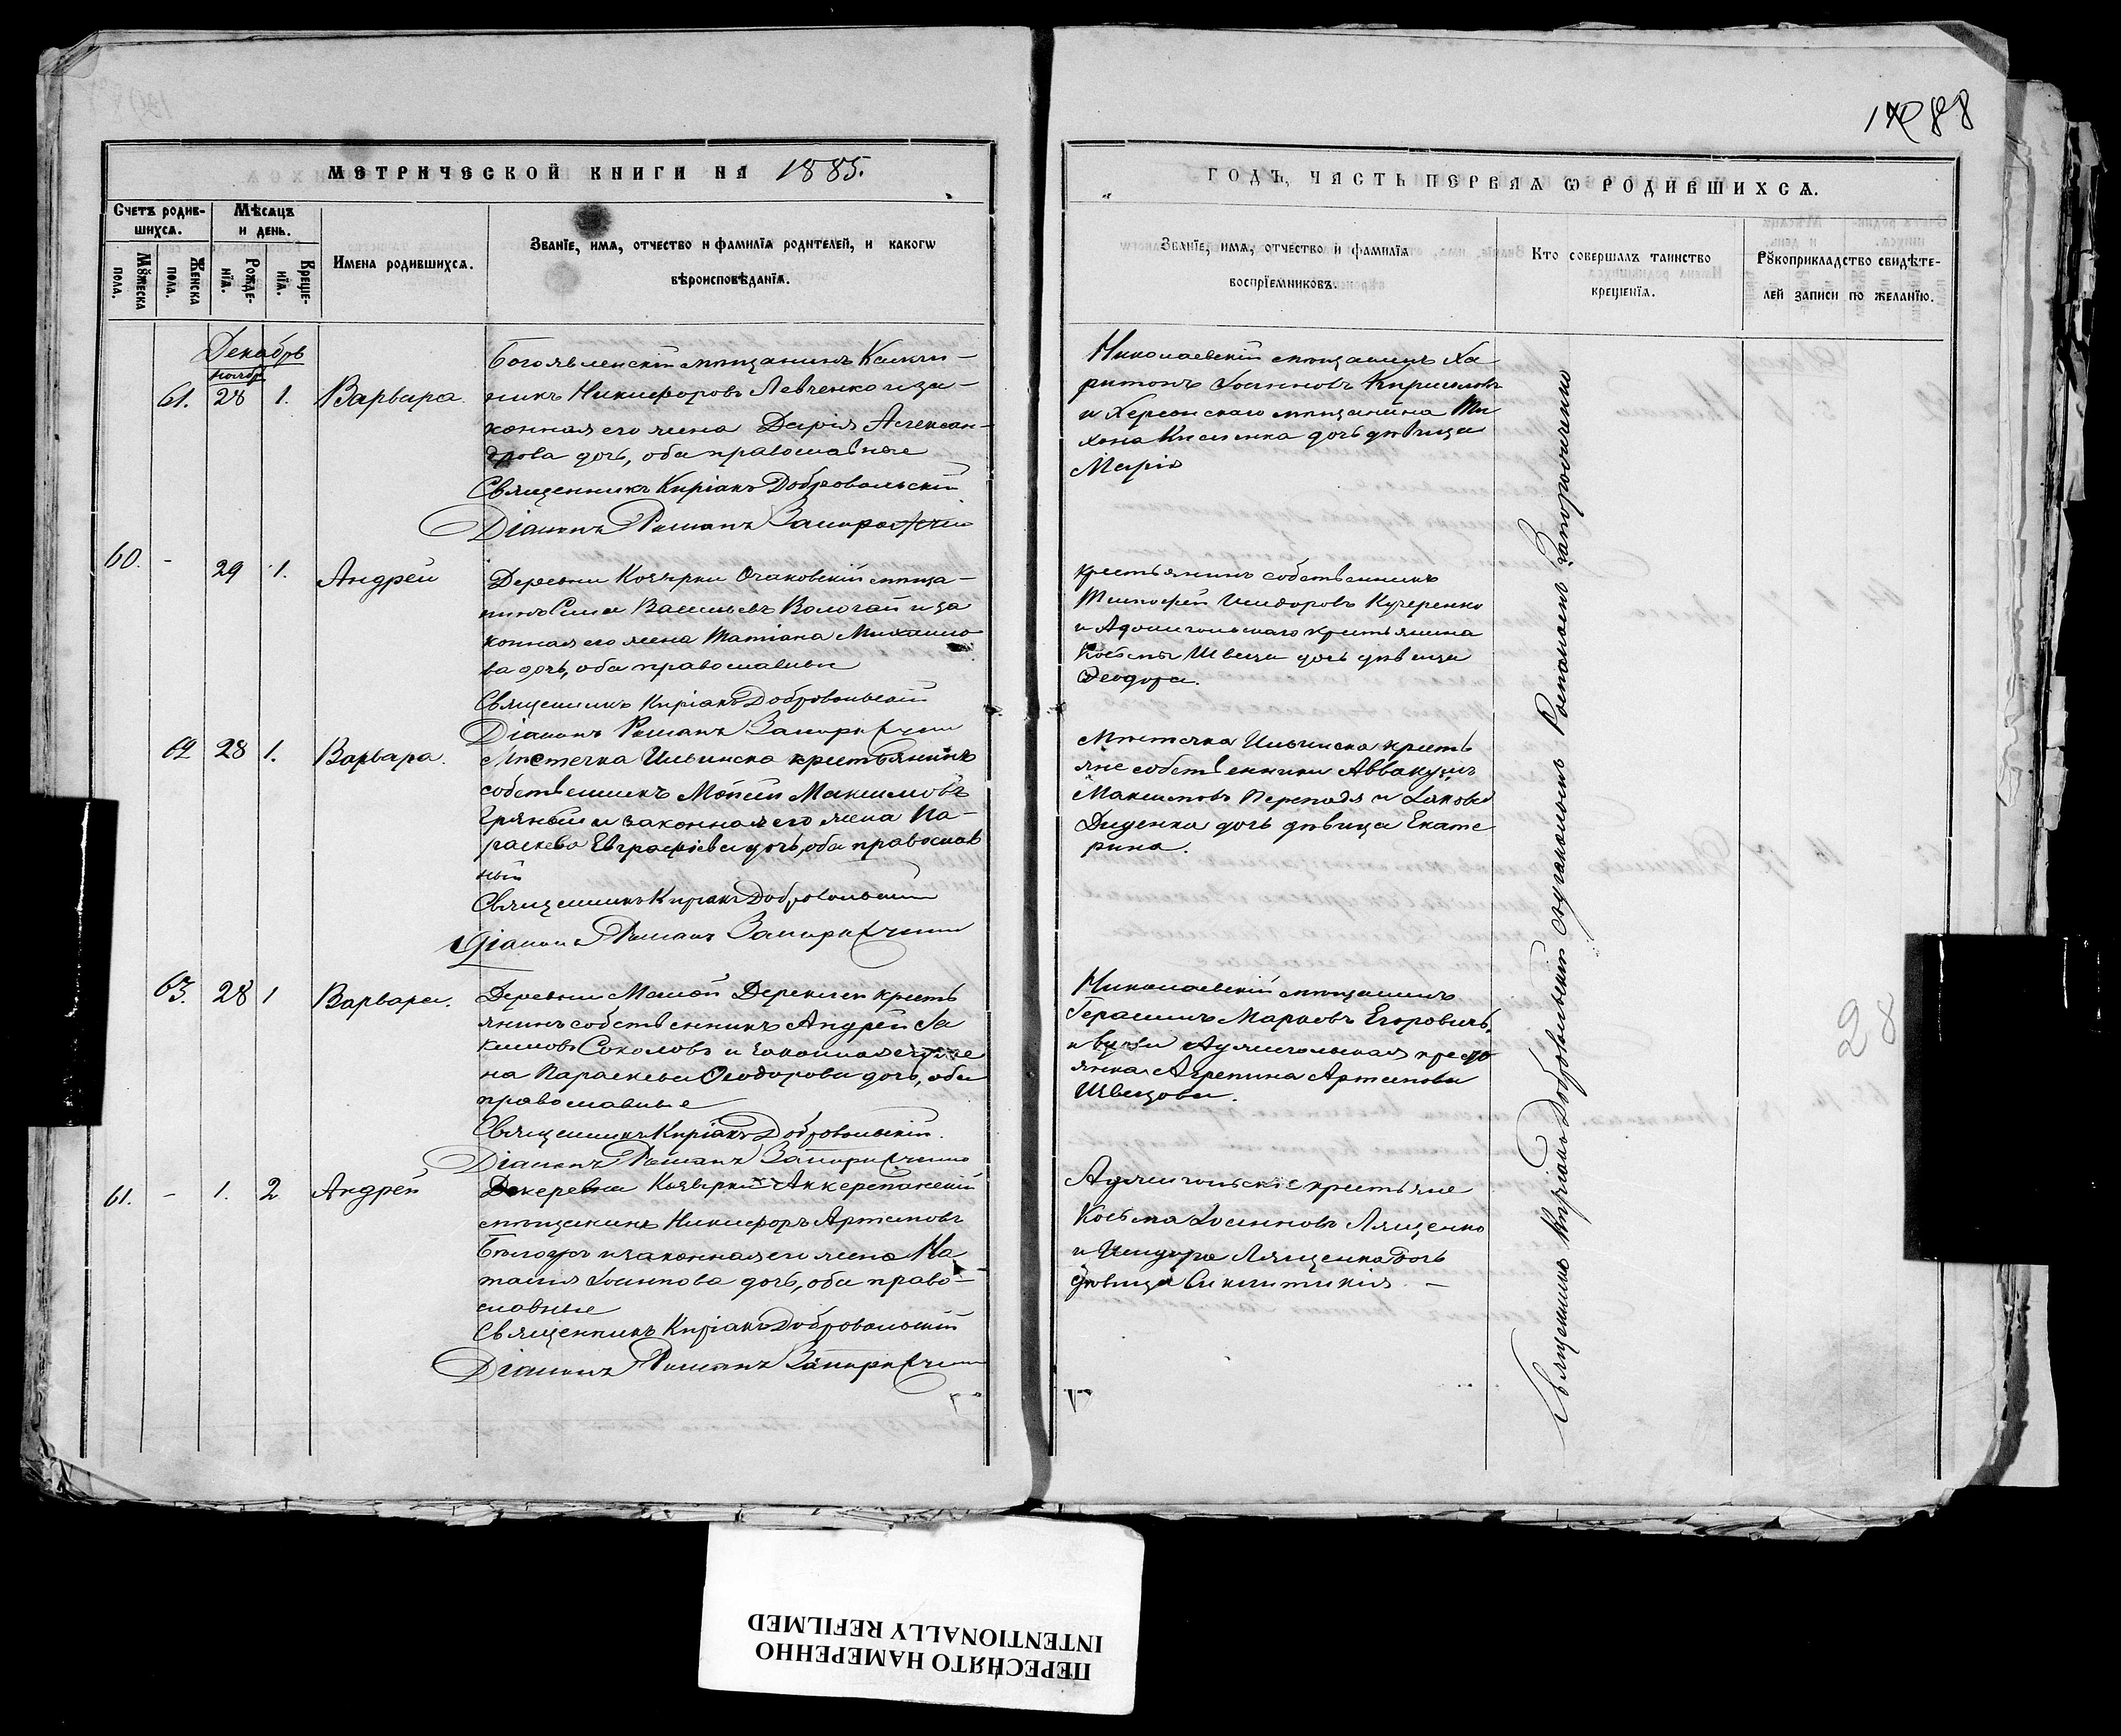 88
МЕТРИЧЕСКОЙ КНИГИ НА 1885.
ГОДЪ, ЧАСТЬ ПЕРВАЯ Ѡ РОДИВШИХСѦ.
Счетъ родив-
шихсѧ.
Мꙋжеска
пола.
Женска
пола.
Мѣсѧцъ
и день.
Рожде-
нїѧ.
Креще-
нїѧ.
Имена родившихсѧ.
Званїе, имѧ, отчество и фамилїѧ родителей, и какогѡ
вѣроисповѣданїѧ.
Званїе, имѧ, отчество и фамилїѧ
воспрїемниковъ.
Кто совершалъ таинство
крещенїѧ.
Рꙋкоприкладство свидѣте-
лей записи по желанїю.
Декабрь
ноябр
61. 28 1. Варвара
Богоявленскій мѣщанинъ Калли-
никъ Никифоровъ Левченко и за-
конная его жена Дарія Алексан-
дрова дочь, оба православные
Священникъ Киріакъ Добровольскій
Діаконъ Романъ
Николаевскій мѣщанинъ Ха
ритонъ Іоанновъ Кирилловъ
и Херсонскаго мѣщанина Ти
хона Кисленка дочь дѣвица
Марія
60. - 29 1. Андрей
Деревни Козырки Очаковскій мѣща-
нинъ Сила Васильевъ Вологай и за
конная его жена Татіана Михаило
ва дочь, оба православные
Священникъ Киріакъ Добровольскій
Діаконъ Романъ
Крестьянинъ собственникъ
Тимофей Исидоровъ Кучеренко
и Аджигольскаго крестьянина
Косьмы Швеца дочь дѣвица
Ѳеодора.
62 28 1. Варвара.
Мѣстечка Ильинска крестьянинъ
собственникъ Моисей Максимовъ
и законная его жена Па-
раскева Евграфіева дочь, оба православ
ныи
Священникъ Киріакъ Добровольскій
Діаконъ Романъ
Мѣстечка Ильинска кресть
яне собственники Аввакумъ
Максимовъ Перепадя и Іакова
Диденка дочь дѣвица Екате
рина.
63. 28 1 Варвара.
Деревни Малой Дереклеи кресть
янинъ собственникъ Андрей Іа
кимовъ Соколовъ и законная его же
на Параскева Ѳеодорова дочь, оба
православные
Священникъ Киріакъ Добровольскій.
Діаконъ Романъ
Николаевскій мѣщанинъ
Герасимъ Марковъ Егоровичъ,
и Аджигольская кресть
янка Агрепина Артемова
Швецова.
61. - 1. 2 Андрей
Деревни Козырки Аккерманскій
мѣщанинъ Никифоръ Артемовъ
Бѣлоусъ и законная его жена На
талія Іоаннова дочь, оба право-
славные
Священникъ Киріакъ Добровольскій
Діаконъ Романъ
Аджигольскіе крестьяне
Косьма Іоанновъ Лященко
и Исидора Лященка дочь
дѣвица Синклитикія. -
Священникъ Киріакъ Добровольскій съ діакономъ Романомъ Запорожченко
28
ПЕРЕСНЯТО НАМЕРЕННО
INTENTIONALLY REFILMED